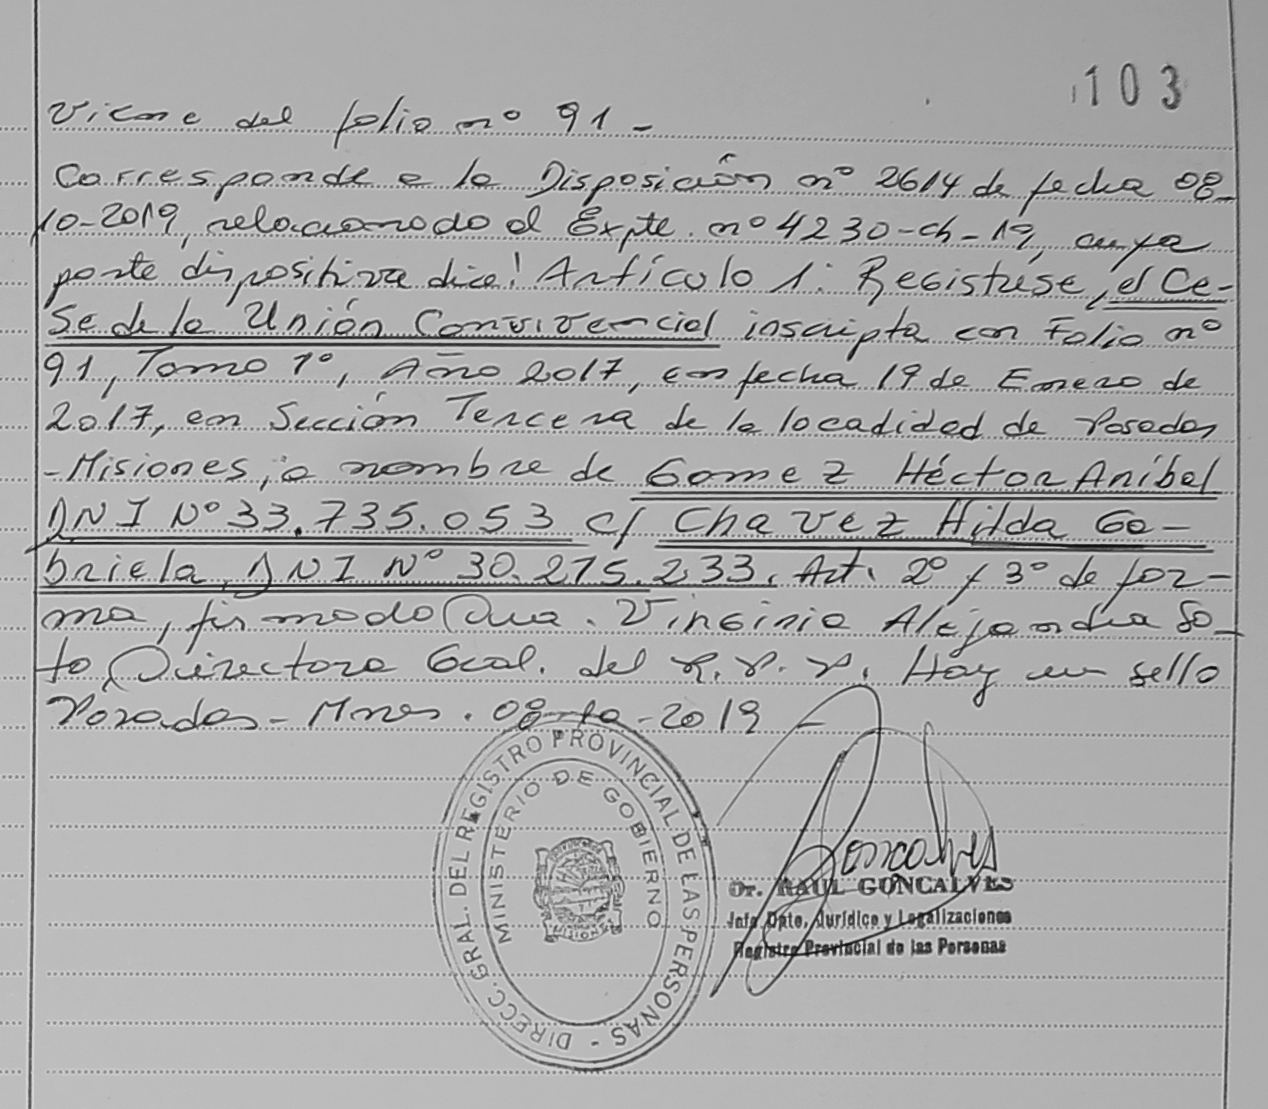 103
Viene del folio nº 91 -
Corresponde a la Disposición nº 2614 de fecha 08-
10-2019, relacionado al Expte. nº 4230-ch-19, cuya
parte dispositiva dice: Artículo 1: Regístrese, el Ce-
se de la Unión Convivencial inscripta con Folio nº
91, Tomo 1º, Año 2017, en fecha 19 de Enero de
2017, en Sección Tercera de la locadidad de Posadas
-Misiones, a nombre de Gomez Héctor Aníbal
DNI Nº 33.735.053 c/ Chavez Hilda Ga-
briela, DNI Nº 30.275.233. Art. 2º y 3º de for-
ma, firmado Dra. Virginia Alejandra So-
to Directora Gral. del R.P.P. Hay un sello
Posadas - Mnes. 08-10-2019 -
DIRECC. GRAL. DEL REGISTRO PROVINCIAL DE LAS PERSONAS -
MINISTERIO DE GOBIERNO
MISIONES
Goncalves
Dr. RAUL GONCALVES
Jefe Dpto. Jurídico y Legalizaciones
Registro Provincial de las Personas